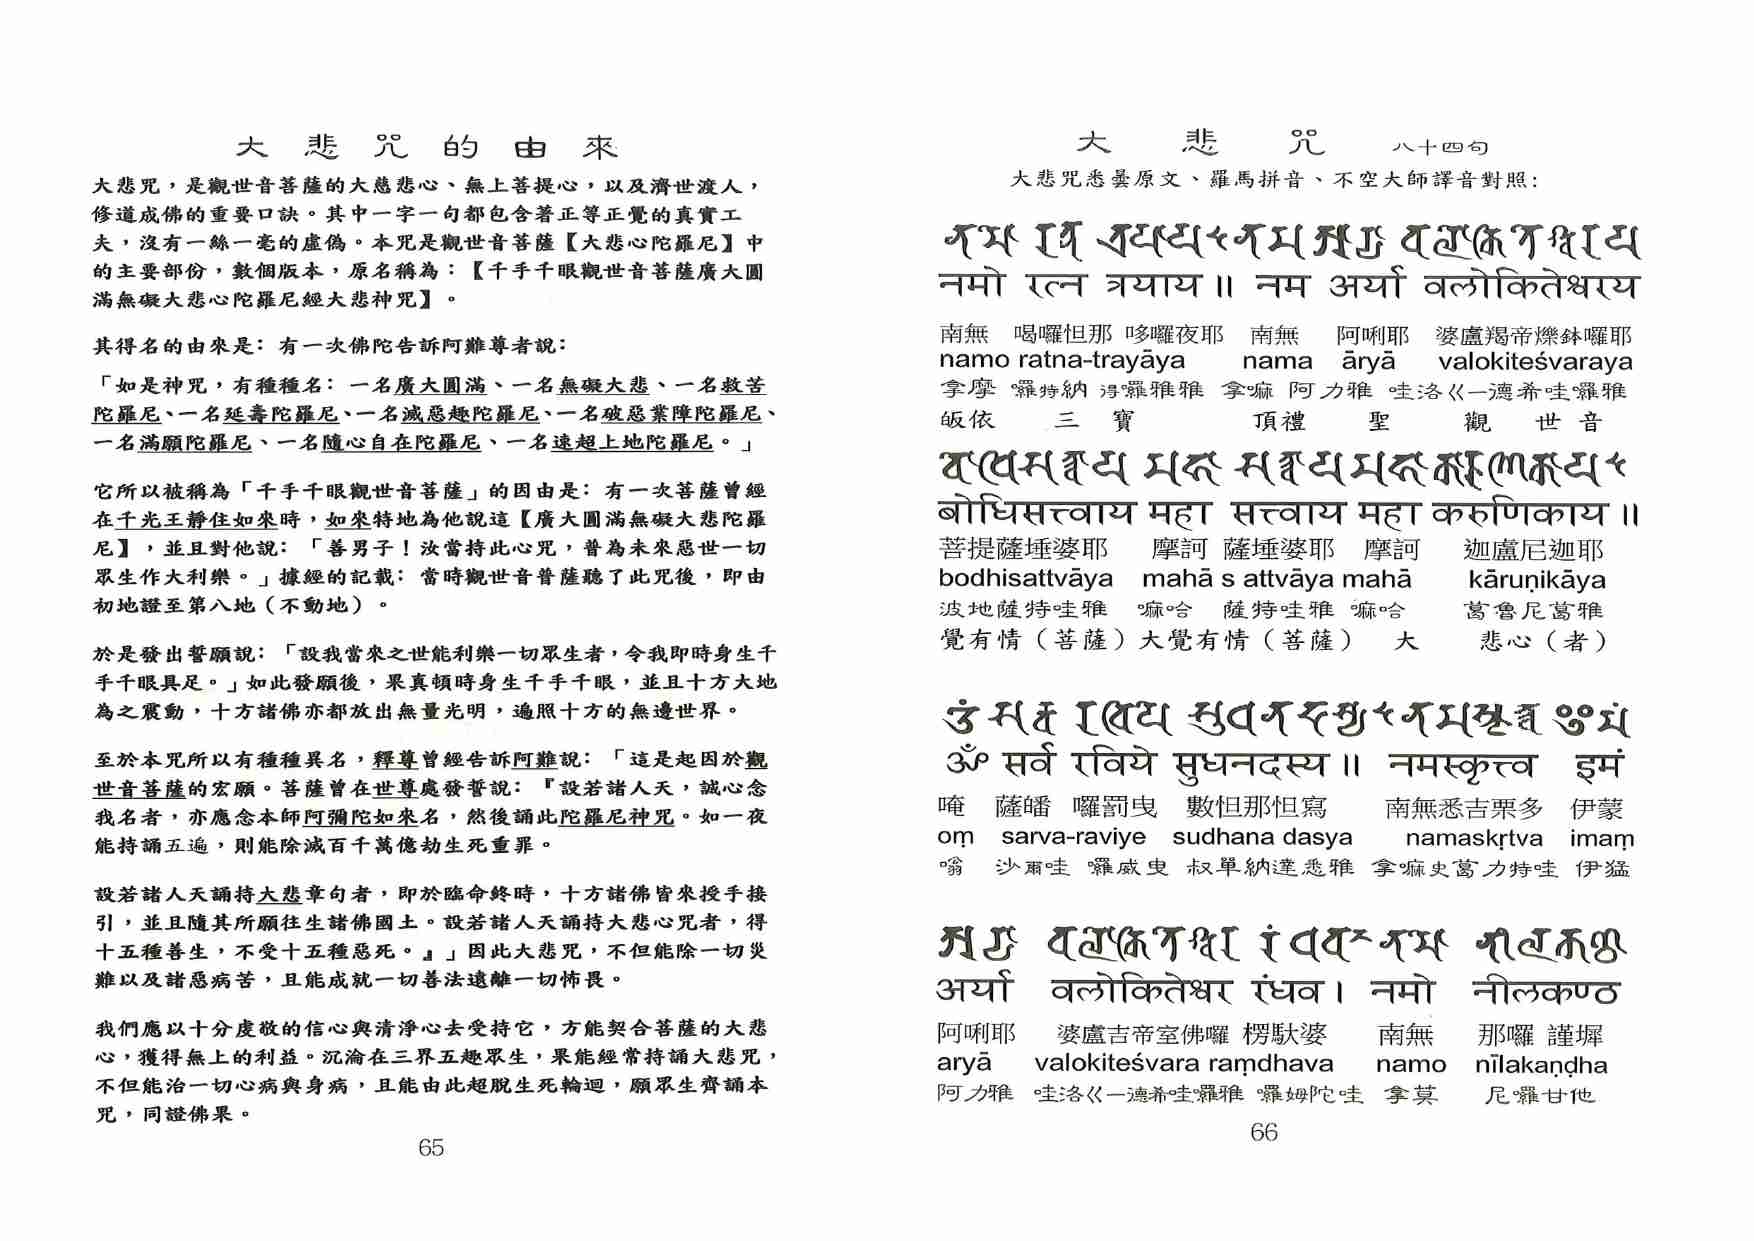 大悲咒的由來
大悲咒，是觀世音菩薩的大慈悲心、無上菩提心，以及濟世渡人，
修道成佛的重要口訣。其中一字一句都包含著正等正覺的真實工
夫，沒有一絲一毫的虛偽。本咒是觀世音菩薩【大悲心陀羅尼】中
的主要部份，數個版本，原名稱為：【千手千眼觀世音菩薩廣大圓
滿無礙大悲心陀羅尼經大悲神咒】。
其得名的由來是：有一次佛陀告訴阿難尊者說：
「如是神咒，有種種名：一名廣大圓滿、一名無礙大悲、一名救苦
陀羅尼、一名延壽陀羅尼、一名滅惡趣陀羅尼、一名破惡業障陀羅尼、
一名滿願陀羅尼、一名隨心自在陀羅尼、一名速超上地陀羅尼。」
它所以被稱為「千手千眼觀世音菩薩」的因由是：有一次菩薩曾經
在千光王靜住如來時，如來特地為他說這【廣大圓滿無礙大悲陀羅
尼】，並且對他說：「善男子！汝當持此心咒，普為未來惡世一切
眾生作大利樂。」據經的記載：當時觀世音普薩聽了此咒後，即由
初地證至第八地（不動地）。
於是發出誓願說：「設我當來之世能利樂一切眾生者，令我即時身生千
手千眼具足。」如此發願後，果真頓時身生千手千眼，並且十方大地
為之震動，十方諸佛亦都放出無量光明，遍照十方的無邊世界。
至於本咒所以有種種異名，釋尊曾經告訴阿難說：「這是起因於觀
世音菩薩的宏願。菩薩曾在世尊處發誓說：『設若諸人天，誠心念
我名者，亦應念本師阿彌陀如來名，然後誦此陀羅尼神咒。如一夜
能持誦五遍，則能除滅百千萬億劫生死重罪。
設若諸人天誦持大悲章句者，即於臨命終時，十方諸佛皆來授手接
引，並且隨其所願往生諸佛國土。設若諸人天誦持大悲心咒者，得
十五種善生，不受十五種惡死。』」因此大悲咒，不但能除一切災
難以及諸惡病苦，且能成就一切善法遠離一切怖畏。
我們應以十分虔敬的信心與清淨心去受持它，方能契合菩薩的大悲
心，獲得無上的利益。沉淪在三界五趣眾生，果能經常持誦大悲咒，
不但能治一切心病與身病，且能由此超脫生死輪迴，願眾生齊誦本
咒，同證佛果。
65
大悲咒 八十四句
大悲咒悉曇原文、羅馬拼音、不空大師譯音對照：
नमो रत्न त्रयाय ॥ नम अर्या वलोकितेश्वरय
南無 喝囉怛那 哆囉夜耶 南無 阿唎耶 婆盧羯帝爍鉢囉耶
namo ratna-trayāya nama āryā valokiteśvaraya
拿摩 囉特納 得囉雅雅 拿嘛 阿力雅 哇洛ㄍㄧ德希哇囉雅
皈依 三 寶 頂禮 聖 觀 世 音
बोधिसत्त्वाय महा सत्त्वाय महा करुणिकाय ॥
菩提薩埵婆耶 摩訶 薩埵婆耶 摩訶 迦盧尼迦耶
bodhisattvāya mahā s attvāya mahā kāruṇikāya
波地薩特哇雅 嘛哈 薩特哇雅 嘛哈 葛魯尼葛雅
覺有情（菩薩）大覺有情（菩薩） 大 悲心（者）
ॐ सर्व रविये सुधनदस्य ॥ नमस्कृत्त्व इमं
唵 薩皤 囉罰曳 數怛那怛寫 南無悉吉栗多 伊蒙
oṃ sarva-raviye sudhana dasya namaskṛtva imaṃ
嗡 沙爾哇 囉威曳 叔單納達悉雅 拿嘛史葛力特哇 伊猛
अर्या वलोकितेश्वर रंधव । नमो नीलकण्ठ
阿唎耶 婆盧吉帝室佛囉 楞馱婆 南無 那囉 謹墀
aryā valokiteśvara raṃdhava namo nīlakaṇḍha
阿力雅 哇洛ㄍㄧ德希哇囉雅 囉姆陀哇 拿莫 尼囉甘他
66